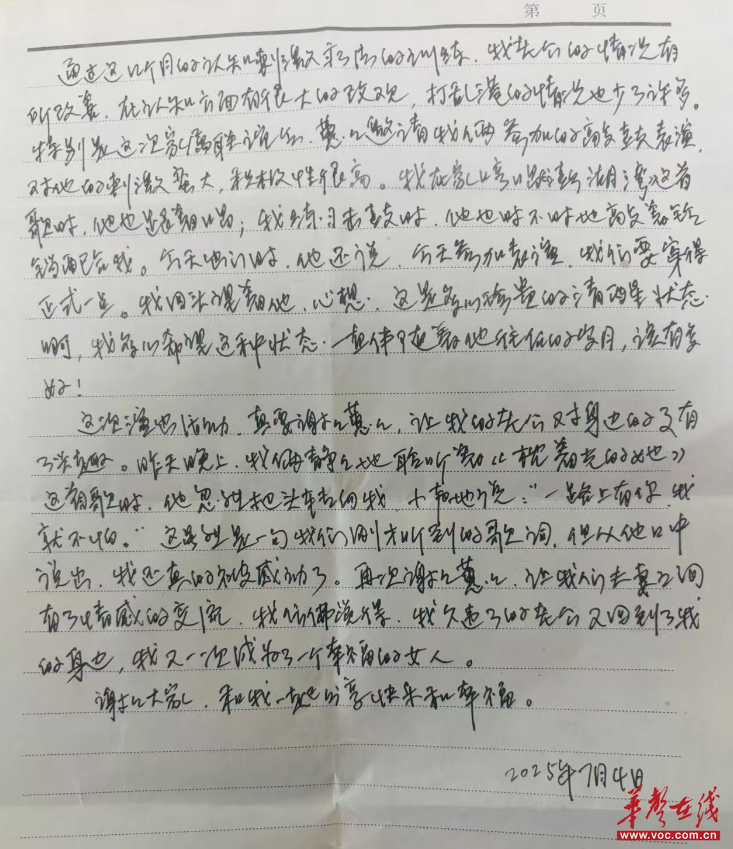 第 页
通过这几个月的认知刺激疗法的训练，我老公的情况有
所改善，在认知方面有很大的改观，打乱语的情况也少了许多。
特别是这次家属联谊会，慧心邀请我们俩参加的商交鼓表演，
对他的刺激蛮大，积极性很高。我在家唱《浏阳河》这首
歌时，他也跟着唱；我练习击鼓时，他也时不时地敲着
配合我。今天出门时，他还说，今天参加表演，我们要穿得
正式一点。我回头望着他，心想，这是多么珍贵的清醒状态
啊，我多么希望这种状态一直伴随着他往后的岁月，该有多
好！
这次演出活动，真要谢谢慧心，让我的老公对身边的事有
了兴趣。昨天晚上，我俩静静地聆听着《枕着光的她》
这首歌时，他忽然把头转向我，小声地说：“一路上有你，我
就不怕。”这虽然是一句我们刚才听到的歌词，但从他口中
说出，我还真的被感动了。再次谢谢慧心，让我们夫妻之间
有了情感的交流，我仿佛觉得，我久违了的老公又回到了我
的身边，我又一次成为了一个幸福的女人。
谢谢大家，和我一起分享快乐和幸福。
2025年7月4日
华声在线
www.voc.com.cn